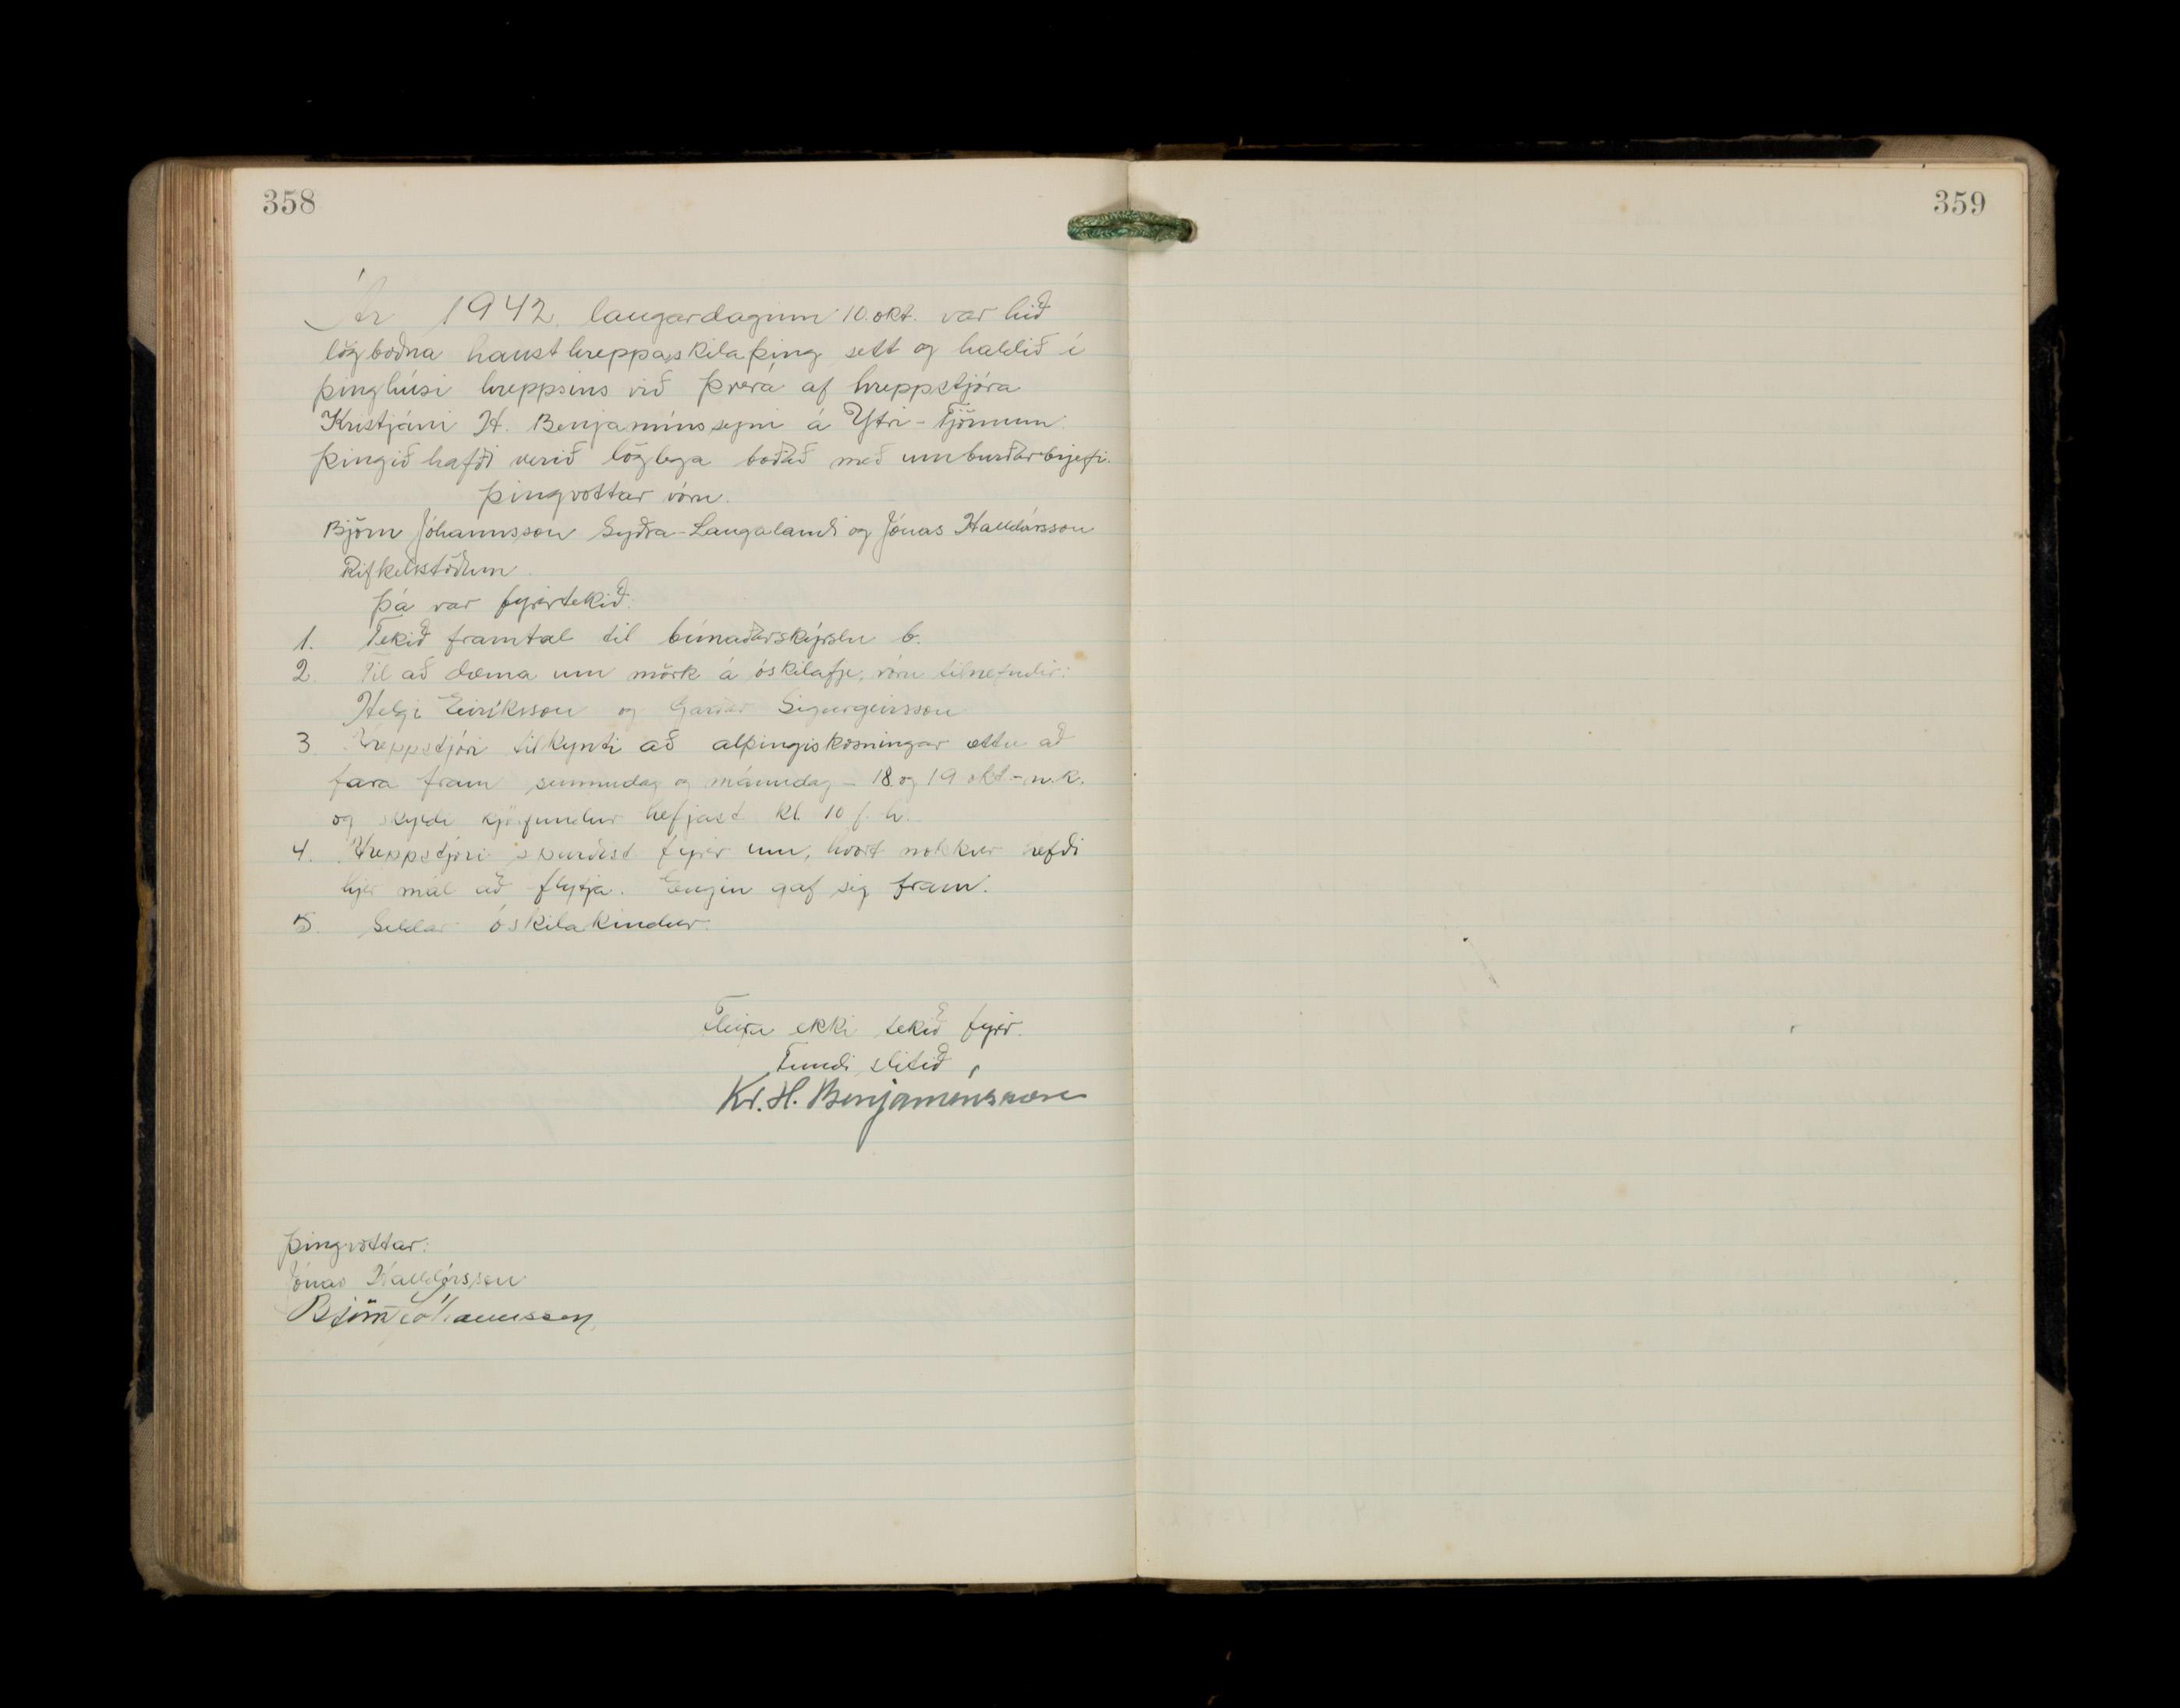 358
359
Ár 1942. laugardaginn 10. okt. var hið
lögboðna hausthreppaskilaþing sett og haldið í
þinghúsi hreppsins við Þverá af hreppstjóra
Kristjáni H. Benjamínssyni á Ytri-Tjörnum.
Þingið hafði verið löglega boðað með umburðarbrjefi.
Þingvottar vóru.
Björn Jóhannsson Syðra-Laugalandi og Jónas Halldórsson
Rifkelsstöðum.
Þá var fyrirtekið.
1. Tekið framtal til búnaðarskýrslu b.
2. Til að dæma um mörk á óskilafje, vóru tilnefndir:
Helgi Eiríksson og Garðar Sigurgeirsson
3 Hreppstjóri tilkynti að alþingiskosningar ættu að
fara fram sunnudag og mánudag - 18. og 19 okt - n.k.
og skyldi kjörfundur hefjast kl. 10 f. h.
4. Hreppstjóri spurðist fyrir um, hvort nokkur hefði
hjer mál að flytja. Engin gaf sig fram.
5. Seldar óskilakindur.
Fleira ekki tekið fyrir.
Fundi slitið,
Kr. H. Benjamínsson
Þingvottar:
Jónas Halldórsson
Björn Jóhannsson